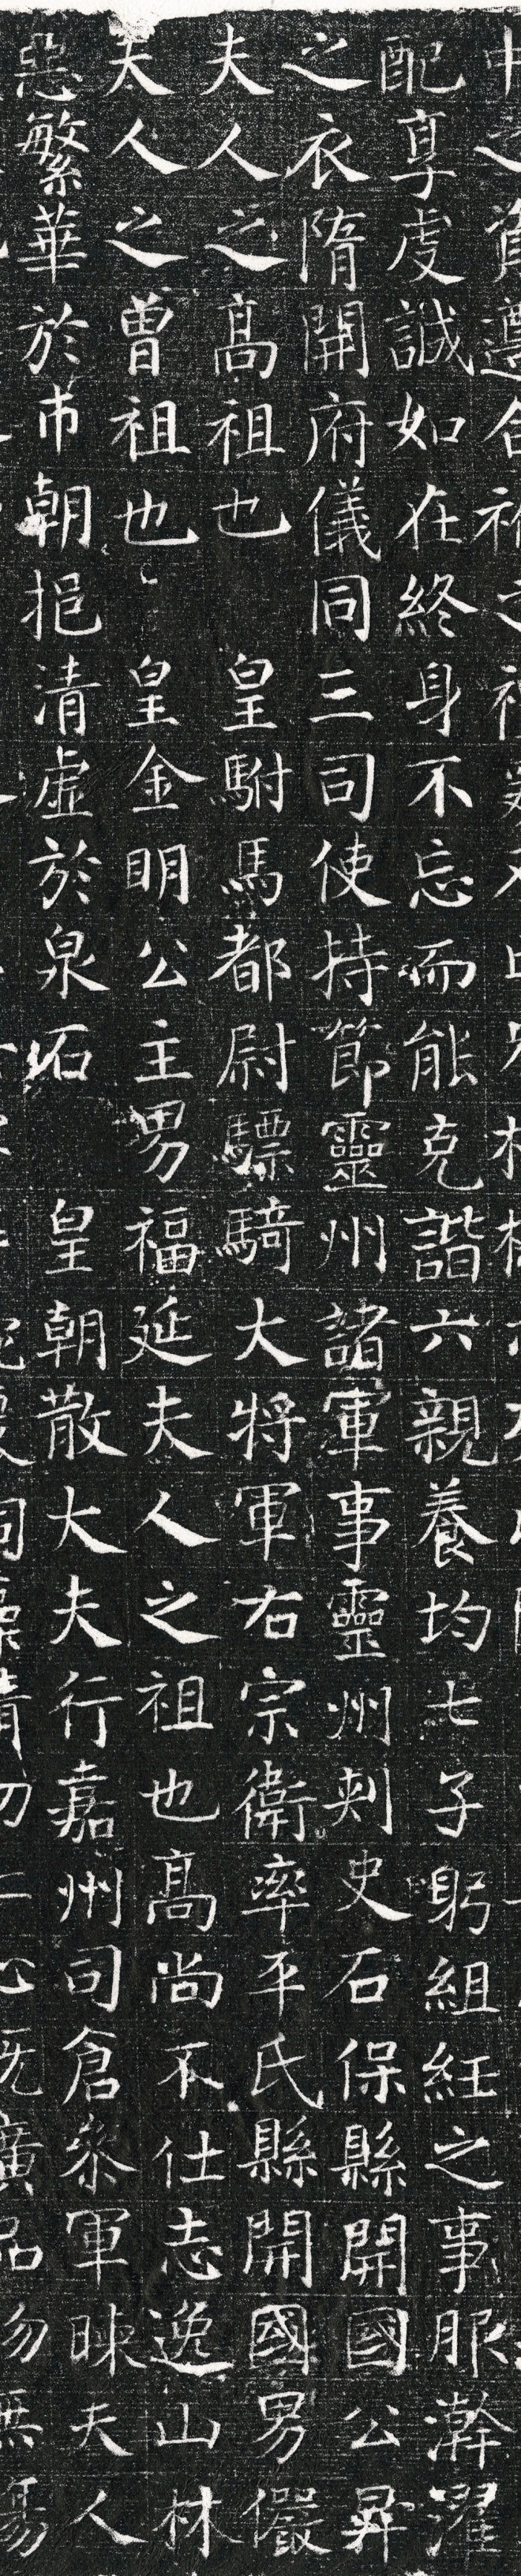 配享虔誠如在終身不忘而能克諧六親養均七子躬組紝之事服澣濯
之衣隋開府儀同三司使持節靈州諸軍事靈州刺史石保縣開國公昇
夫人之高祖也皇駙馬都尉驃騎大將軍右宗衛率平氏縣開國男儼
夫人之曾祖也皇金明公主男福延夫人之祖也高尚不仕志逸山林
惡繁華於市朝挹清虛於泉石皇朝散大夫行嘉州司倉參軍暕夫人